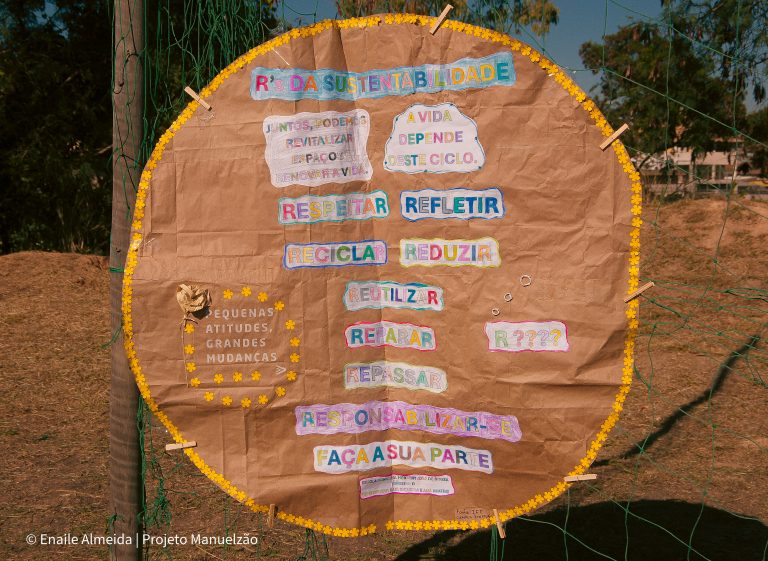 R's DA SUSTENTABILIDADE
JUNTOS, PODEMOS
REVITALIZAR
ESPAÇOS
RENOVAR A VIDA.
A VIDA
DEPENDE
DESTE CICLO.
RESPEITAR
REFLETIR
RECICLAR
REDUZIR
REUTILIZAR
PEQUENAS
ATITUDES,
GRANDES
MUDANÇAS
REPARAR
R ????
REPASSAR
RESPONSABILIZAR-SE
FAÇA A SUA PARTE
© Enaile Almeida | Projeto Manuelzão